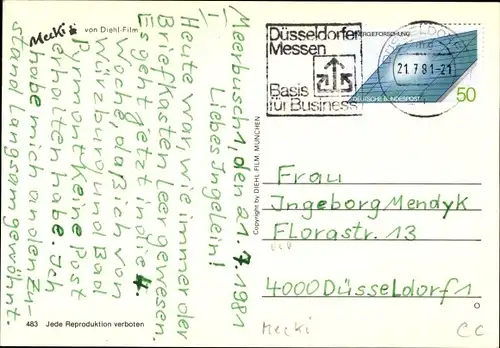 Mecki von Diehl-Film
Meerbusch 1, den 21.7.1981
Liebes Ingelein!
Heute war, wie immer der
Briefkasten leer gewesen.
Es geht jetzt in die 4.
Woche, daß ich von
Würzburg und Bad
Pyrmont keine Post
erhalten habe. Ich
habe mich an den Zu-
stand langsam gewöhnt.
483 Jede Reproduktion verboten
Copyright by DIEHL-FILM, MÜNCHEN
Düsseldorfer
Messen
Basis
für Business
ENERGIEFORSCHUNG
DEUTSCHE BUNDESPOST
50
21.7.81-21
Frau
Ingeborg Mendyk
Florastr. 13
4000 Düsseldorf 1
Mecki
CC